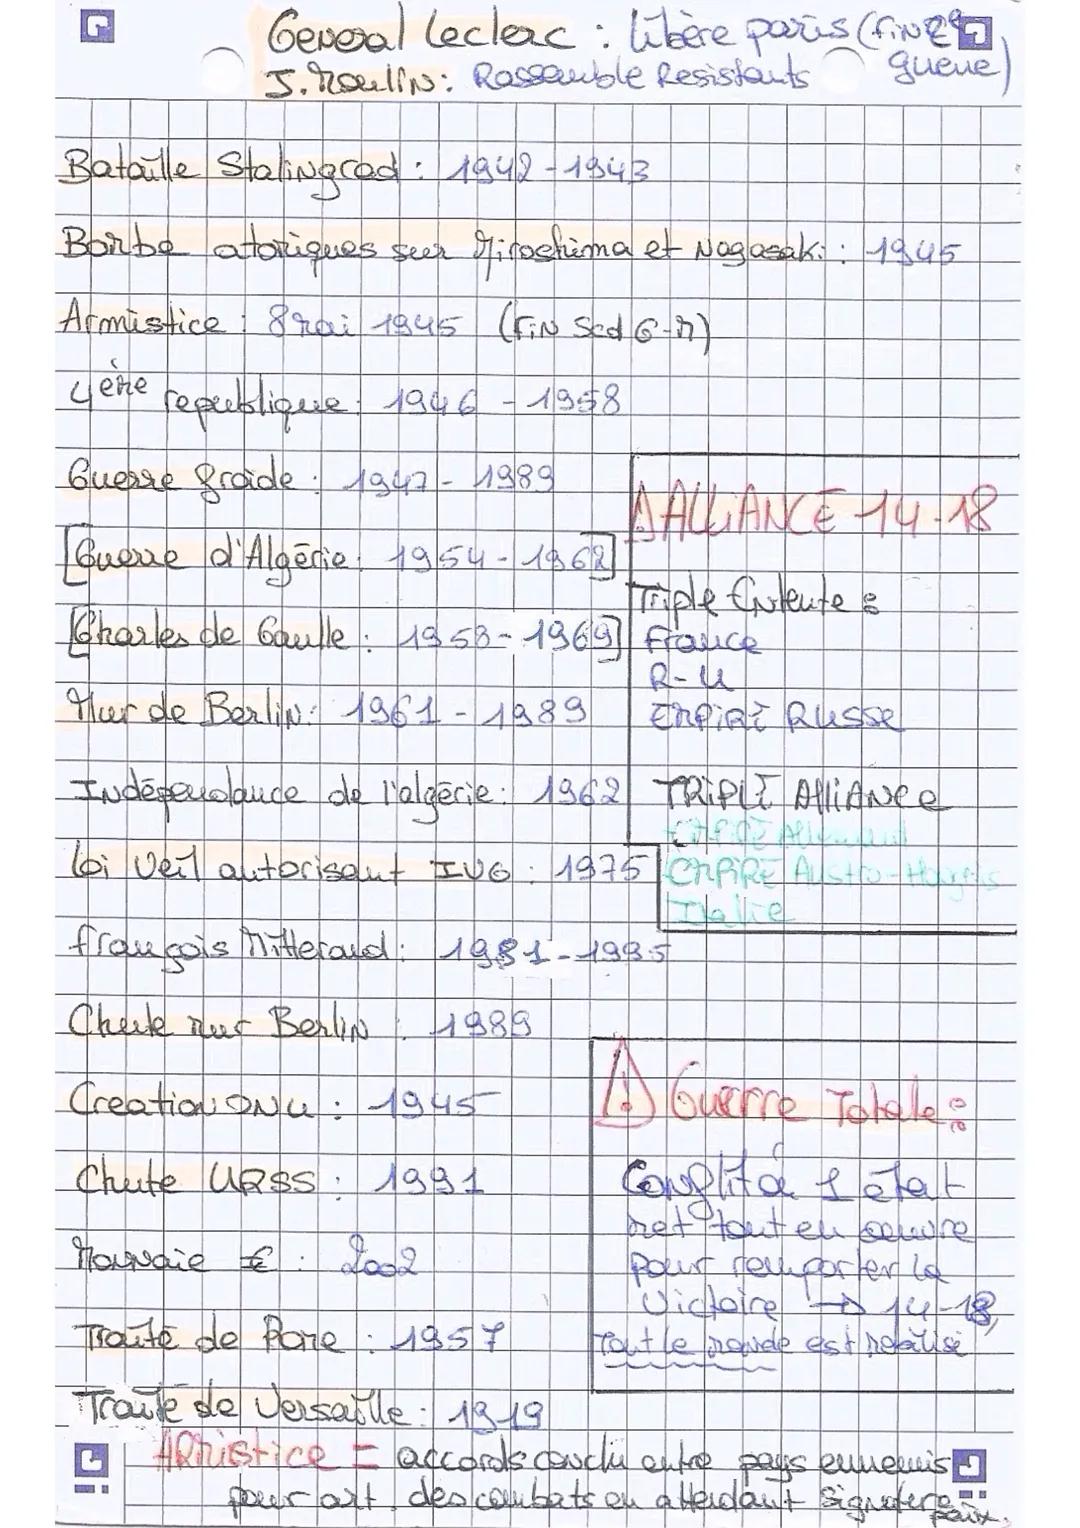 General Leclerc : libère paris (fin 2e guerre)
J. Moulin : Rassemble Resistants
Bataille Stalingrad : 1942 - 1943
Bombe atomiques sur Hiroshima et Nagasaki : 1945
Armistice : 8 mai 1945 (fin Scd G-M)
4ème republique : 1946 - 1958
Guerre froide : 1947 - 1989
[Guerre d'Algérie : 1954 - 1962]
[Charles de Gaulle : 1958 - 1969]
Mur de Berlin : 1961 - 1989
Indépendance de l'algérie : 1962
loi Veil autorisant IVG : 1975
françois Mitterand : 1981 - 1995
Chute mur Berlin : 1989
Creation ONU : 1945
Chute URSS : 1991
Monnaie € : 2002
Traité de Rome : 1957
Traité de Versaille : 1919
⚠ ALLiANCE 14-18
Triple Entente :
France
R-U
EMPiRE Russe
TRiPLE AlliANce
EMPiRE Allemand
EMPiRE Austro-Hongrois
Italie
⚠ Guerre Totale :
Conflit où 1 état
met tout en oeuvre
pour remporter la
Victoire → 14-18,
Tout le monde est mobilisé
ARMistice = accords conclu entre pays ennemis
pour arrt. des combats en attendant signature paix.